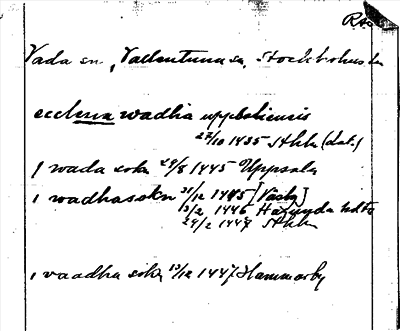 RA
Vada sn, Vallentuna sn, Stockholms län
ecclesia wadhia uppsaliensis
27/10 1435 Sthlm (lat.)
j wada sokn 29/8 1445 Uppsala
i wadhasokn 31/12 1445 [Väsby]
13/2 1446 Hazunda hdtg
29/2 1447 Sthlm
i vaadha sokn 13/12 1447 Hammarby